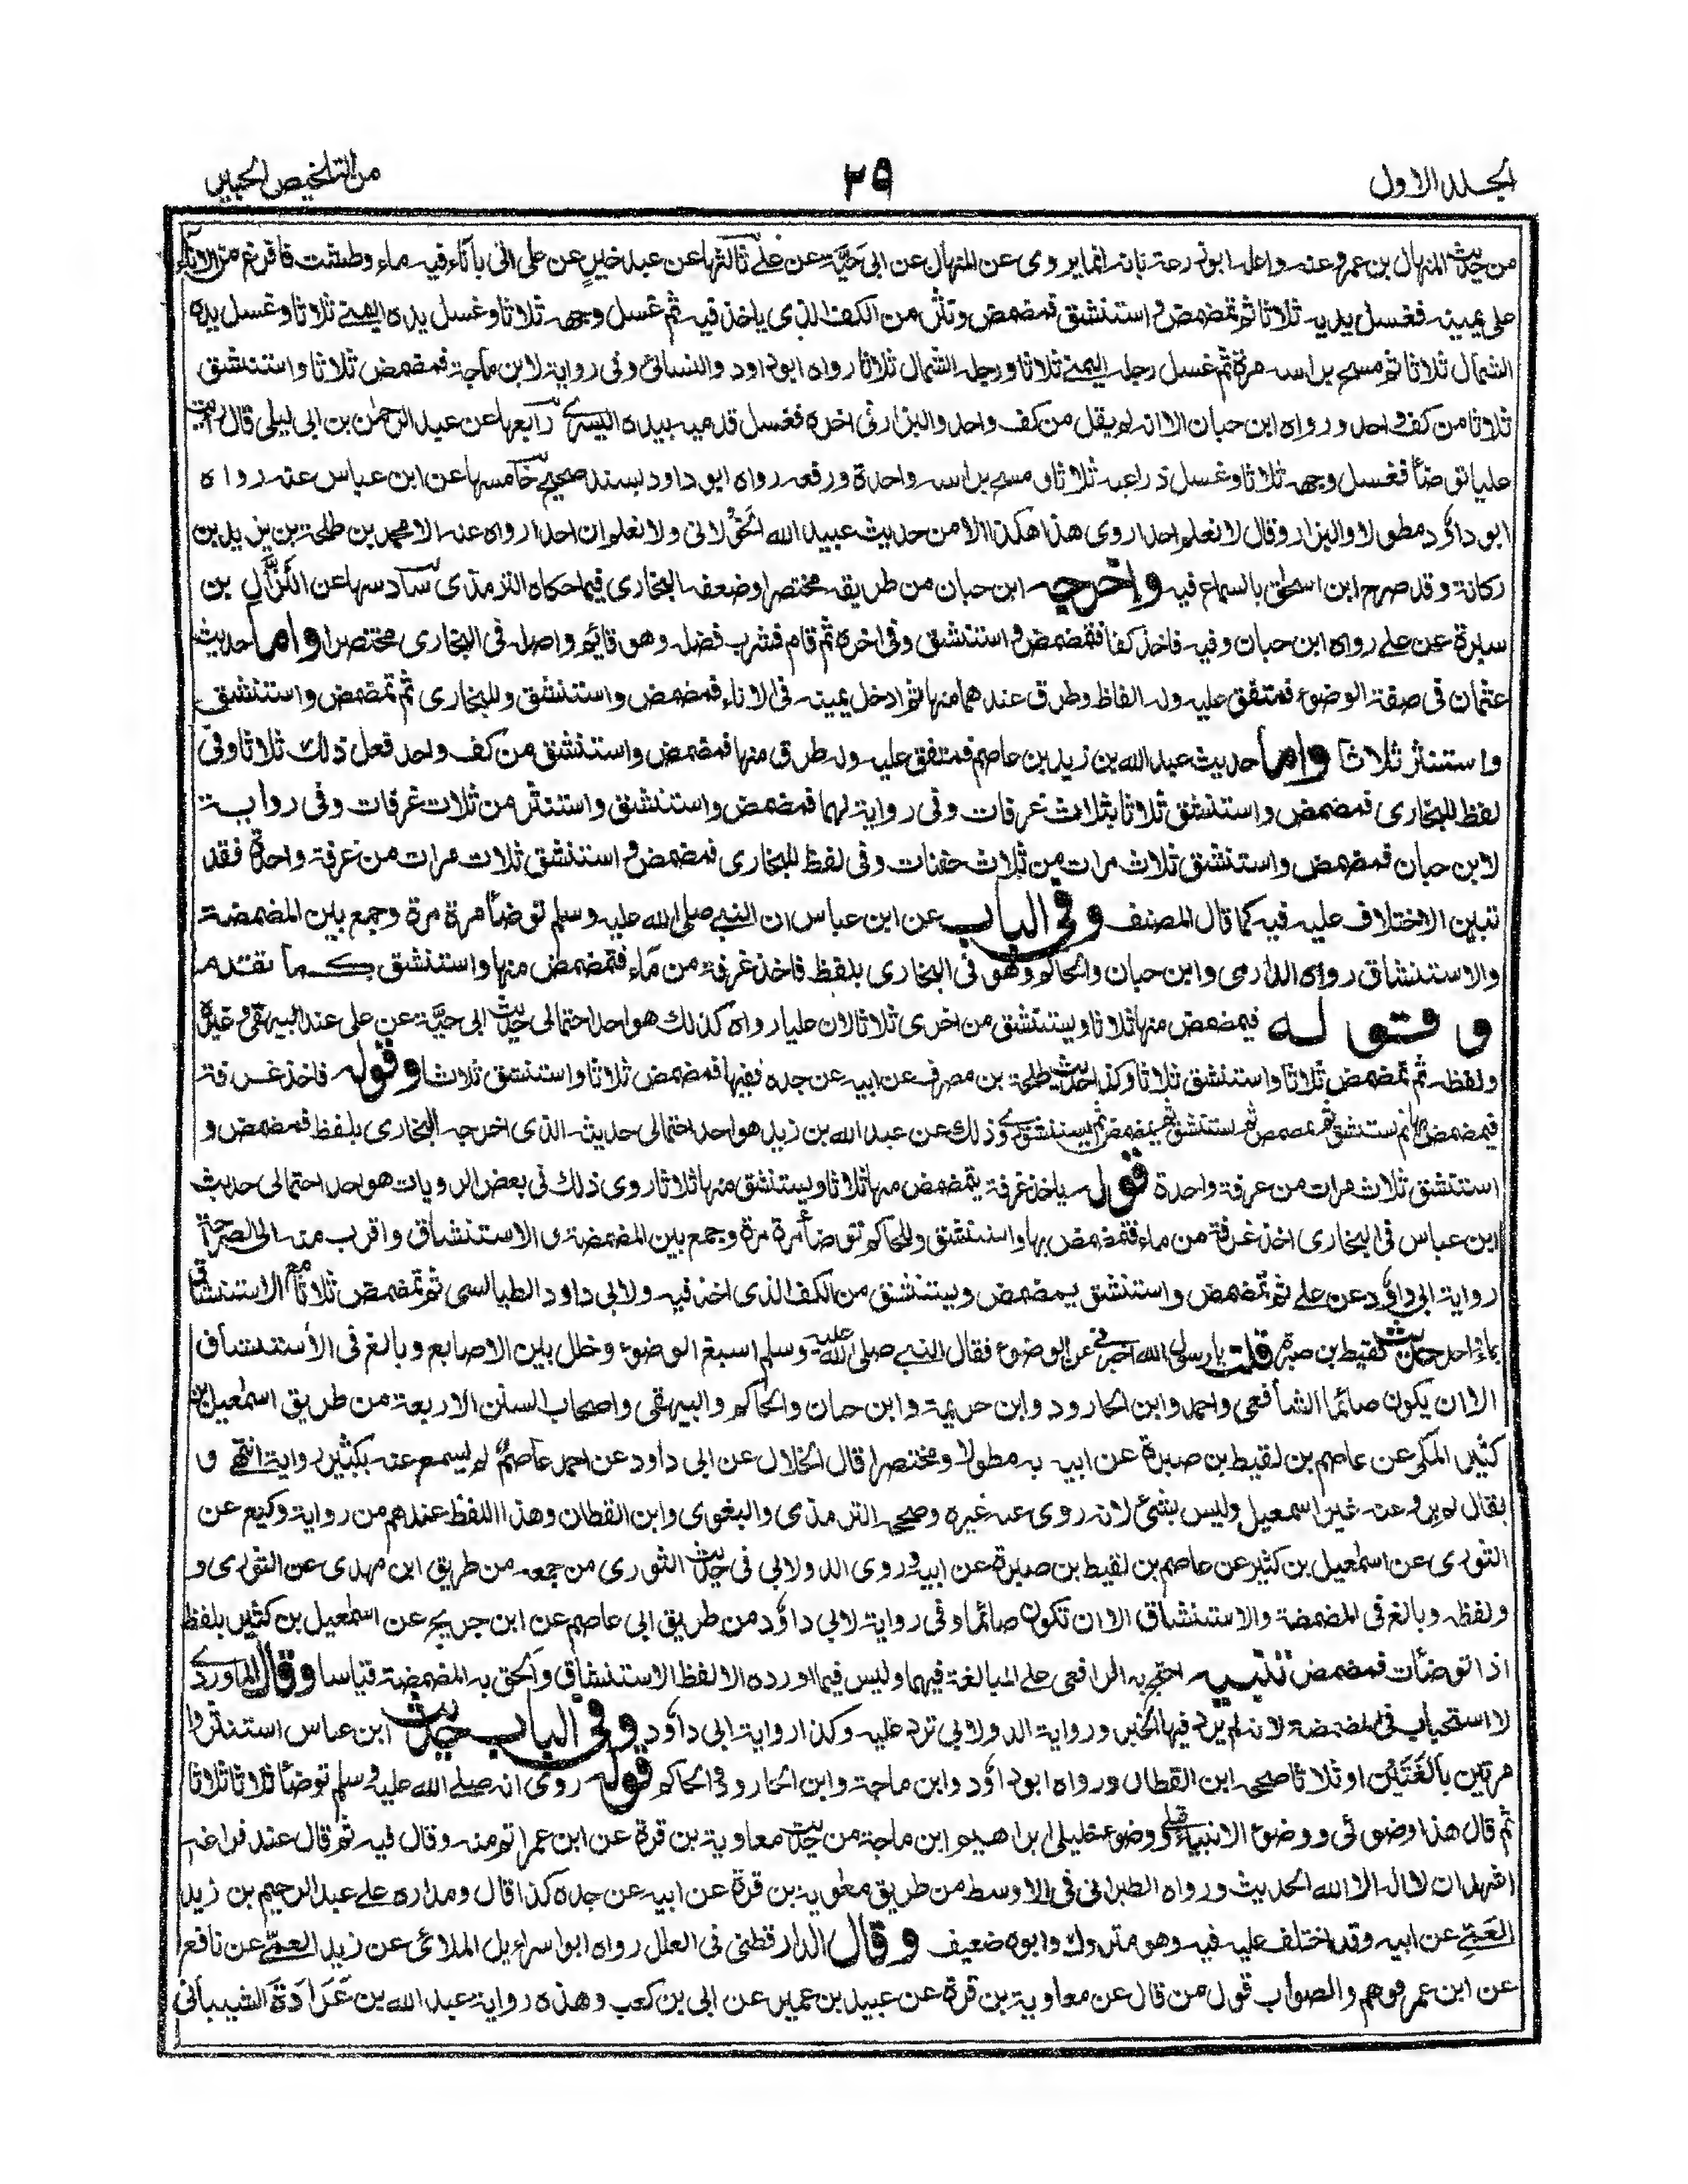 الجلد الاول
٢٩
من التلخيص الحبير
من حديث المنهال بن عمرو عنه واعله ابو زرعة بانه انما يروى عن المنهال عن ابى حَيَّة عن على ثالثها عن عبد خيرٍ عن على اتى باناء فيه ماء وطشت فافرغ من الاناء
على يمينه فغسل يديه ثلاثا ثم تمضمض و استنشق فمضمض ونثر من الكف الذى ياخذ فيه ثم غسل وجهه ثلاثا وغسل يده اليمنے ثلاثا وغسل يده
الشمال ثلاثا ثم مسح براسه مرة ثم غسل رجله اليمنے ثلاثا ورجله الشمال ثلاثا رواه ابو داود والنسائى وفى رواية لابن ماجة فمضمض ثلاثا واستنشق
ثلاثا من كف واحد ورواه ابن حبان الا انه لم يقل من كف واحد والبزار فى اخره فغسل قدميه بيده اليسرے رابعها عن عبد الرحمٰن بن ابى ليلى قال رايت
عليا توضأ فغسل وجهه ثلاثا وغسل ذراعيه ثلاثا و مسح براسه واحدة ورفعه رواه ابو داود بسند صحيح خامسها عن ابن عباس عنه رواه
ابو داؤد مطولا والبزار وقال لا نعلم احدا روى هذا هكذا الا من حديث عبيد الله الخَوْلانى ولا نعلم ان احدا رواه عنه الا محمد بن طلحة بن يزيد بن
ركانة وقد صرح ابن اسحٰق بالسماع فيه واخرجه ابن حبان من طريقه مختصرا وضعفه البخارى فيما حكاه الترمذى سادسها عن النَزَّال بن
سبرة عن على رواه ابن حبان وفيه فاخذ كفا فمضمض و استنشق وفى اخره ثم قام فشرب فضله وهو قائم واصله فى البخارى مختصرا واما حديث
عثمان فى صفة الوضوء فمتفق عليه وله الفاظ وطرق عندهما منها ثم ادخل يمينه فى الاناء فمضمض واستنشق وللبخارى ثم تمضمض واستنشق
واستنثر ثلاثا واما حديث عبد الله بن زيد بن عاصم فمتفق عليه وله طرق منها فمضمض واستنشق من كف واحد فعل ذلك ثلاثا وفى
لفظ للبخارى فمضمض واستنشق ثلاثا بثلاث غرفات وفى رواية لهما فمضمض واستنشق واستنثر من ثلاث غرفات وفى رواية
لابن حبان فمضمض واستنشق ثلاث مرات من ثلاث حفنات وفى لفظ للبخارى فمضمض و استنشق ثلاث مرات من غرفة واحدة فقد
تبين الاختلاف عليه فيه كما قال المصنف وفى الباب عن ابن عباس ان النبے صلى الله عليه وسلم توضأ مرة مرة وجمع بين المضمضة
والاستنشاق رواه الدارمى وابن حبان والحاكم وهو فى البخارى بلفظ فاخذ غرفة من ماء فتمضمض منها واستنشق كما تقدم
وقوله فيمضمض منها ثلاثا ويستنشق من اخرى ثلاثا لان عليا رواه كذلك هو احد احتمالى حديث ابى حيَّة عن على عند البيهقى وغيره
ولفظه ثم تمضمض ثلاثا واستنشق ثلاثا وكذا حديث طلحة بن مصرف عن ابيه عن جده ففيها فمضمض ثلاثا واستنشق ثلاثا وقوله فاخذ غرفة
فيمضمض ثم يستنشق وذلك عن عبد الله بن زيد هو احد احتمالى حديثه الذى اخرجه البخارى بلفظ فمضمض و
استنشق ثلاث مرات من غرفة واحدة قوله ياخذ غرفة يتمضمض منها ثلاثا ويستنشق منها ثلاثا روى ذلك فى بعض الروايات هو احد احتمالى حديث
ابن عباس فى البخارى اخذ غرفة من ماء فتمضمض بها واستنشق وللحاكم توضأ مرة مرة وجمع بين المضمضة و الاستنشاق واقرب منه الى الصراحة
رواية ابى داؤد عن على ثم تمضمض واستنشق يمضمض ويستنشق من الكف الذى اخذ فيه ولابى داود الطيالسى ثم تمضمض ثلاثا مع الاستنشاق
بماء واحد حديث لقيط بن صبرة قلت يا رسول الله اخبرنى عن الوضوء فقال النبے صلى الله عليه وسلم اسبغ الوضوء وخلل بين الاصابع وبالغ فى الاستنشاق
الا ان يكون صائما الشافعى واحمد وابن الجارود وابن خزيمة وابن حبان والحاكم والبيهقى واصحاب السنن الاربعة من طريق اسمٰعيل بن
كثير المكى عن عاصم بن لقيط بن صبرة عن ابيه به مطولا ومختصرا قال الخلال عن ابى داود عن احمد عاصم لم يسمع عنه بكثير رواية انتهے و
يقال لم يرو عنه غير اسمعيل وليس بشئ لانه روى عنه غيره وصححه الترمذى والبغوى وابن القطان وهذا اللفظ عندهم من رواية وكيع عن
الثورى عن اسمٰعيل بن كثير عن عاصم بن لقيط بن صبرة عن ابيه وروى الدولابى فى حديث الثورى من جمعه من طريق ابن مهدى عن الثورى و
ولفظه وبالغ فى المضمضة والاستنشاق الا ان تكون صائما وفى رواية لابى داؤد من طريق ابى عاصم عن ابن جريج عن اسمٰعيل بن كثير بلفظ
اذا توضأت فمضمض تنبيه احتج به الرافعى على المبالغة فيهما وليس فيما اورده الا لفظ الاستنشاق والحق به المضمضة قياسا وقال الماوردے
لا استحباب فى المضمضة لانه لم يرد فيها الخبر ورواية الدولابى ترد عليه وكذا رواية ابى داؤد وفى الباب حديث ابن عباس استنثروا
مرتين بالغتين او ثلاثا صححه ابن القطان ورواه ابو داؤد وابن ماجة وابن الجارود والحاكم قوله روى انه صلے الله عليه وسلم توضأ ثلاثا ثلاثا
ثم قال هذا وضوئى ووضوء الانبياء قبلى ووضوء خليلى ابراهيم ابن ماجة من حديث معاوية بن قرة عن ابن عمر اتم منه وقال فيه ثم قال عند فراغه
اشهد ان لا اله الا الله الحديث ورواه الطبرانى فى الاوسط من طريق معٰوية بن قرة عن ابيه عن جده كذا قال ومداره على عبد الرحيم بن زيد
العَمِّے عن ابيه وقد اختلف عليه فيه وهو متروك وابوه ضعيف وقال الدارقطنى فى العلل رواه ابو اسرائيل الملائى عن زيد العمّے عن نافع
عن ابن عمر فوهم والصواب قول من قال عن معاوية بن قرة عن عبيد بن عمير عن ابى بن كعب وهذه رواية عبد الله بن عَرَادَةَ الشيبانى